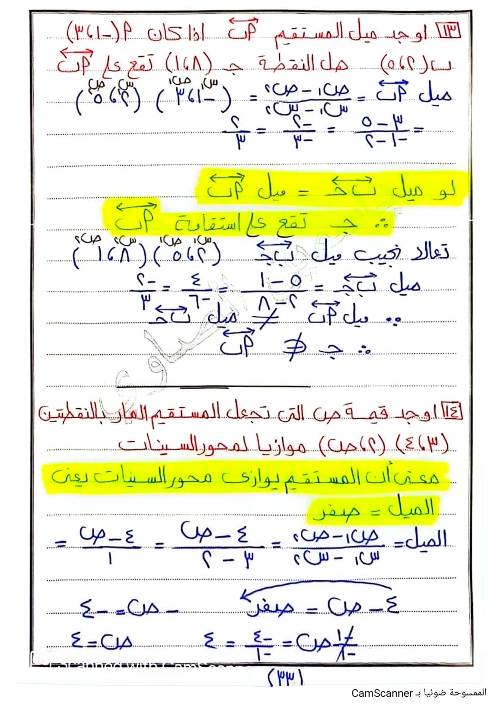 ١٣ اوجد ميل المستقيم أب اذا كان أ(-١، ٣)
ب(٢، ٥) هل النقطة جـ (٨، ١) تقع على أب
ميل أب = ص١ - ص٢ / س١ - س٢ = (-١، ٣) (٢، ٥)
= ٣ - ٥ / -١ - ٢ = -٢ / -٣ = ٢ / ٣
لو ميل ب جـ = ميل أب
∴ جـ تقع على استقامة أب
تعالا نجيب ميل ب جـ (٢، ٥) (٨، ١)
ميل ب جـ = ٥ - ١ / ٢ - ٨ = ٤ / -٦ = -٢ / ٣
∵ ميل أب ≠ ميل ب جـ
∴ جـ ∉ أب
١٤ اوجد قيمة ص التى تجعل المستقيم المار بالنقطتين
(٣، ٤) (٢، ص) موازيا لمحور السينات
معنى أن المستقيم يوازى محور السينات يعنى
الميل = صفر
الميل = ص١ - ص٢ / س١ - س٢ = ٤ - ص / ٣ - ٢ = ٤ - ص / ١ =
٤ - ص = صفر - ص = -٤
-١/-١ ص = -٤/-١ = ٤ ص = ٤
(٣٣)
الممسوحة ضوئيا بـ CamScanner